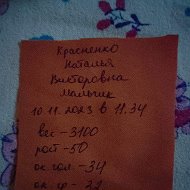 Красненко
Наталья
Викторовна
Мальчик
10.11.2023 в 11.34
вес - 3100
рост - 50
ок гол. - 34
ок гр -